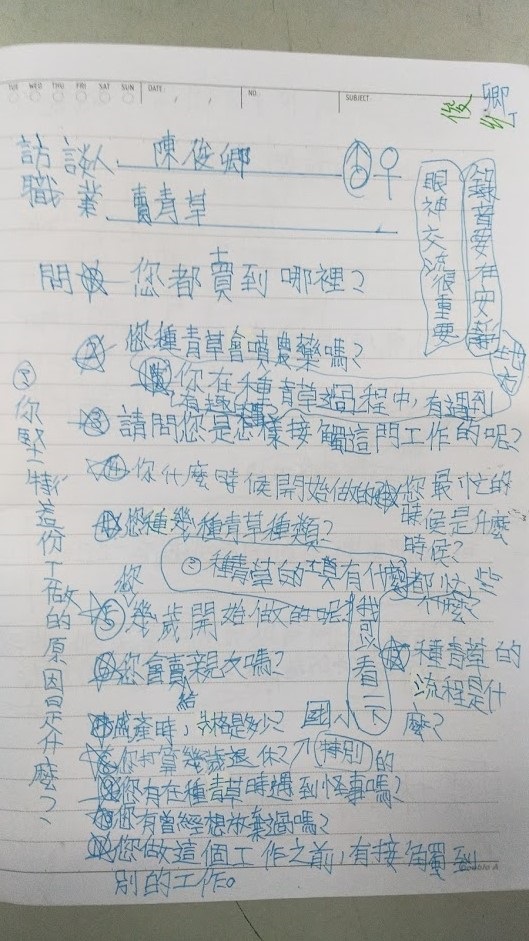 SUE WED THU FRI SAT SUN DATE NO. SUBJECT
俊卿
訪談人 陳俊卿
職業 賣青草
錄音要
眼神交流很重要
問 您都賣到哪裡?
② 您種青草會噴農藥嗎?
你在種青草過程中,有遇到
有趣
③ 請問您是怎樣接觸這門工作的呢?
④ 你什麼時候開始做的
您最忙的時候是什麼時候?
您種幾種青草種類?
種青草的 有什麼
我可以看一下
您
⑤ 幾歲開始做的呢
您會
結
種青草的流程是什麼?
盛產時,
國小
你打算幾歲退休?
特別的
您有在種青草時遇到怪事嗎?
你有曾經想放棄過嗎?
您做這個工作之前,有接觸到
別的工作。
③ 你堅持這份工做的原因是什麼?
Double A